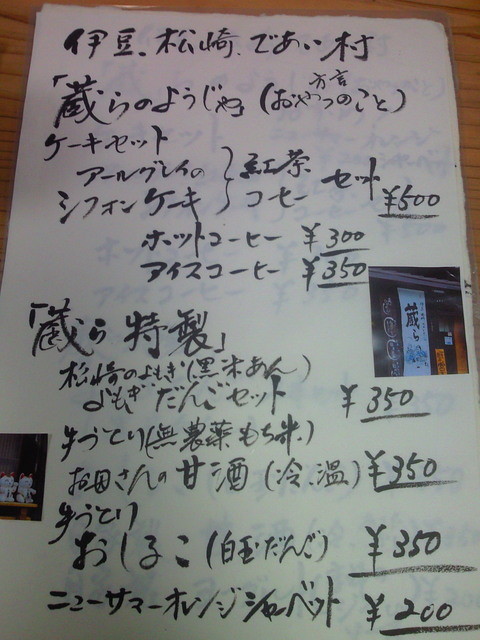 伊豆、松崎、であい村
「蔵らのようじゃ」(おやつのこと)
方言
ケーキセット
アールグレイの
シフォンケーキ
紅茶
コーヒー
セット ¥500
ホットコーヒー ¥300
アイスコーヒー ¥350
「蔵ら特製」
松崎のよもぎ(黒米あん)
よもぎだんごセット ¥350
手づくり(無農薬もち米)
お母さんの甘酒(冷、温) ¥350
手づくり
おしるこ(白玉だんご) ¥350
ニューサマーオレンジシャーベット ¥200
蔵ら